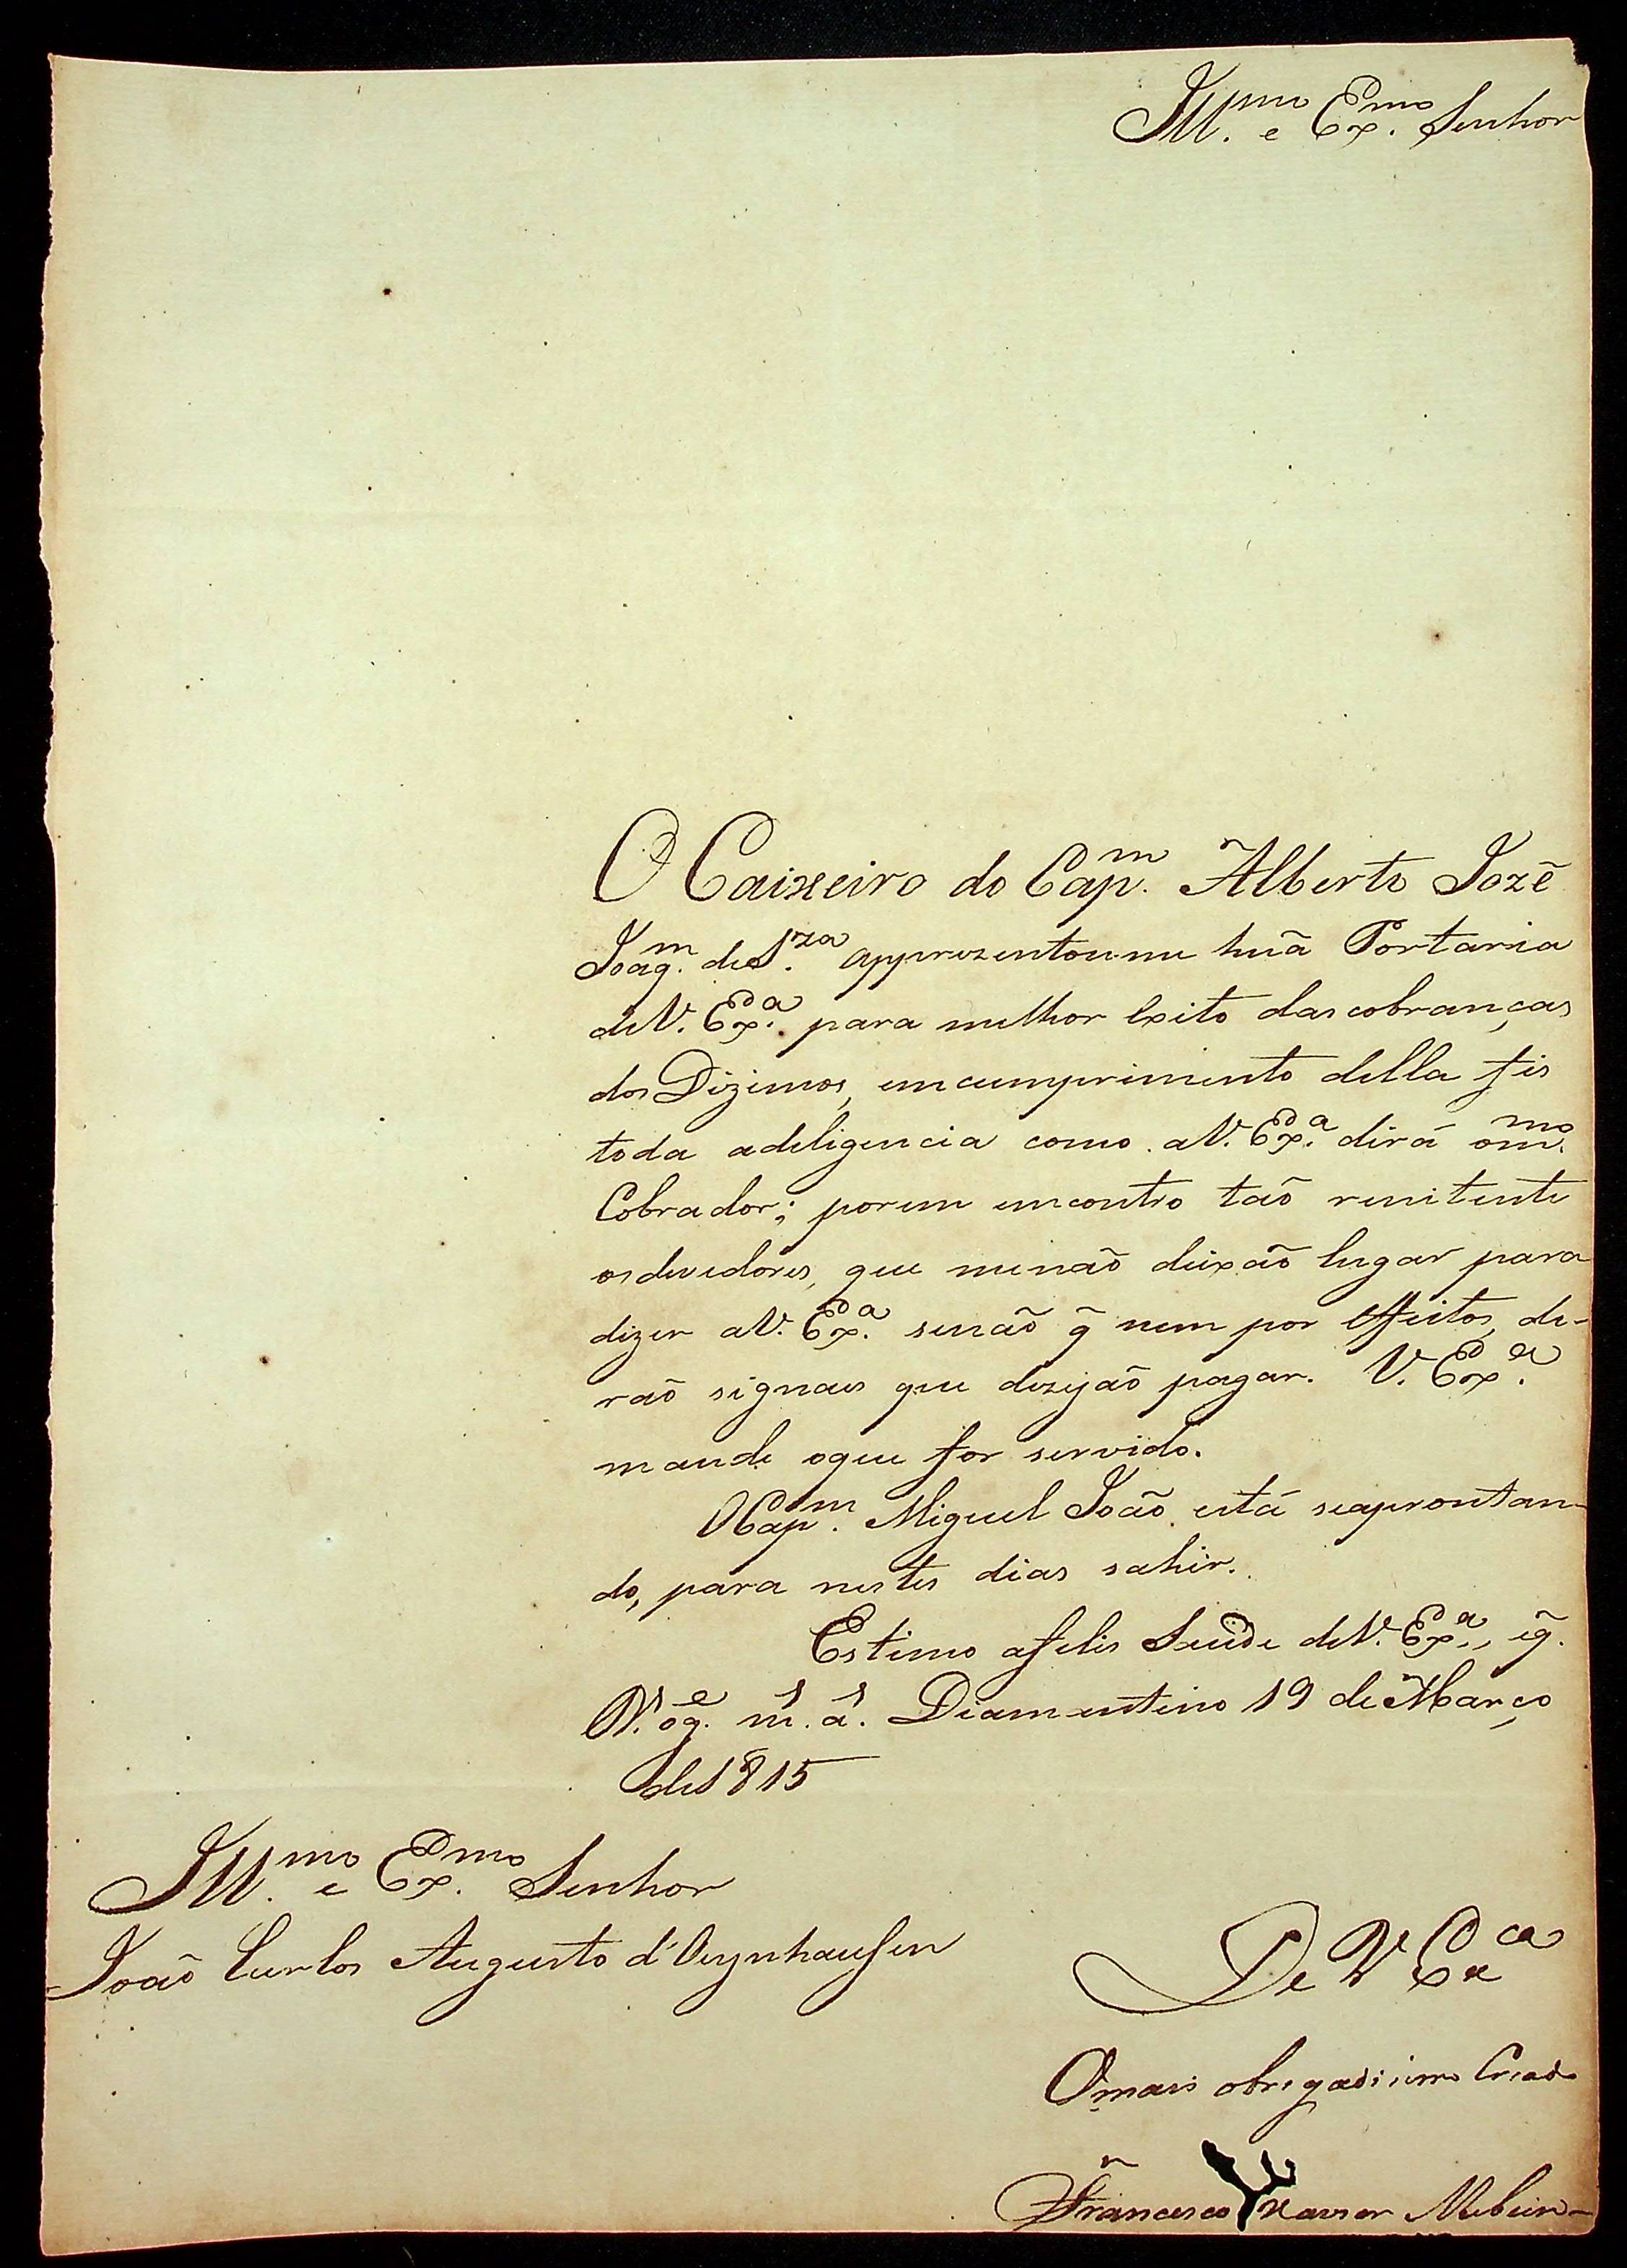 Ill.mo e Ex.mo Senhor
O Caixeiro do Cap.m Alberto Jozé
Joaq.m de S.za apprezentou-me huã Portaria
de V. Ex.a para melhor exito das cobranças
dos Dizimos, em cumprimento della fis
toda a deligencia como a V. Ex.a dirá o m.mo
Cobrador; porem encontro taõ renitente
os devedores, que me naõ deixaõ lugar para
dizer a V. Ex.a senaõ q̃ nem por effeitos, de-
raõ signaes que dezejaõ pagar. V. Ex.a
mande o que for servido.
O Cap.m Miguel Joaõ está se aprontan-
do, para nestes dias sahir.
Estimo a felis Saude de V. Ex.a, e q̃.
N. S. o g.e m.s a.s Diamentino 19 de Março
de 1815
Ill.mo e Ex.mo Senhor
Joaõ Carlos Augusto d'Oeynhausen
De V Ex.cia
O mais obrigadissimo Criado
Francisco Xavier